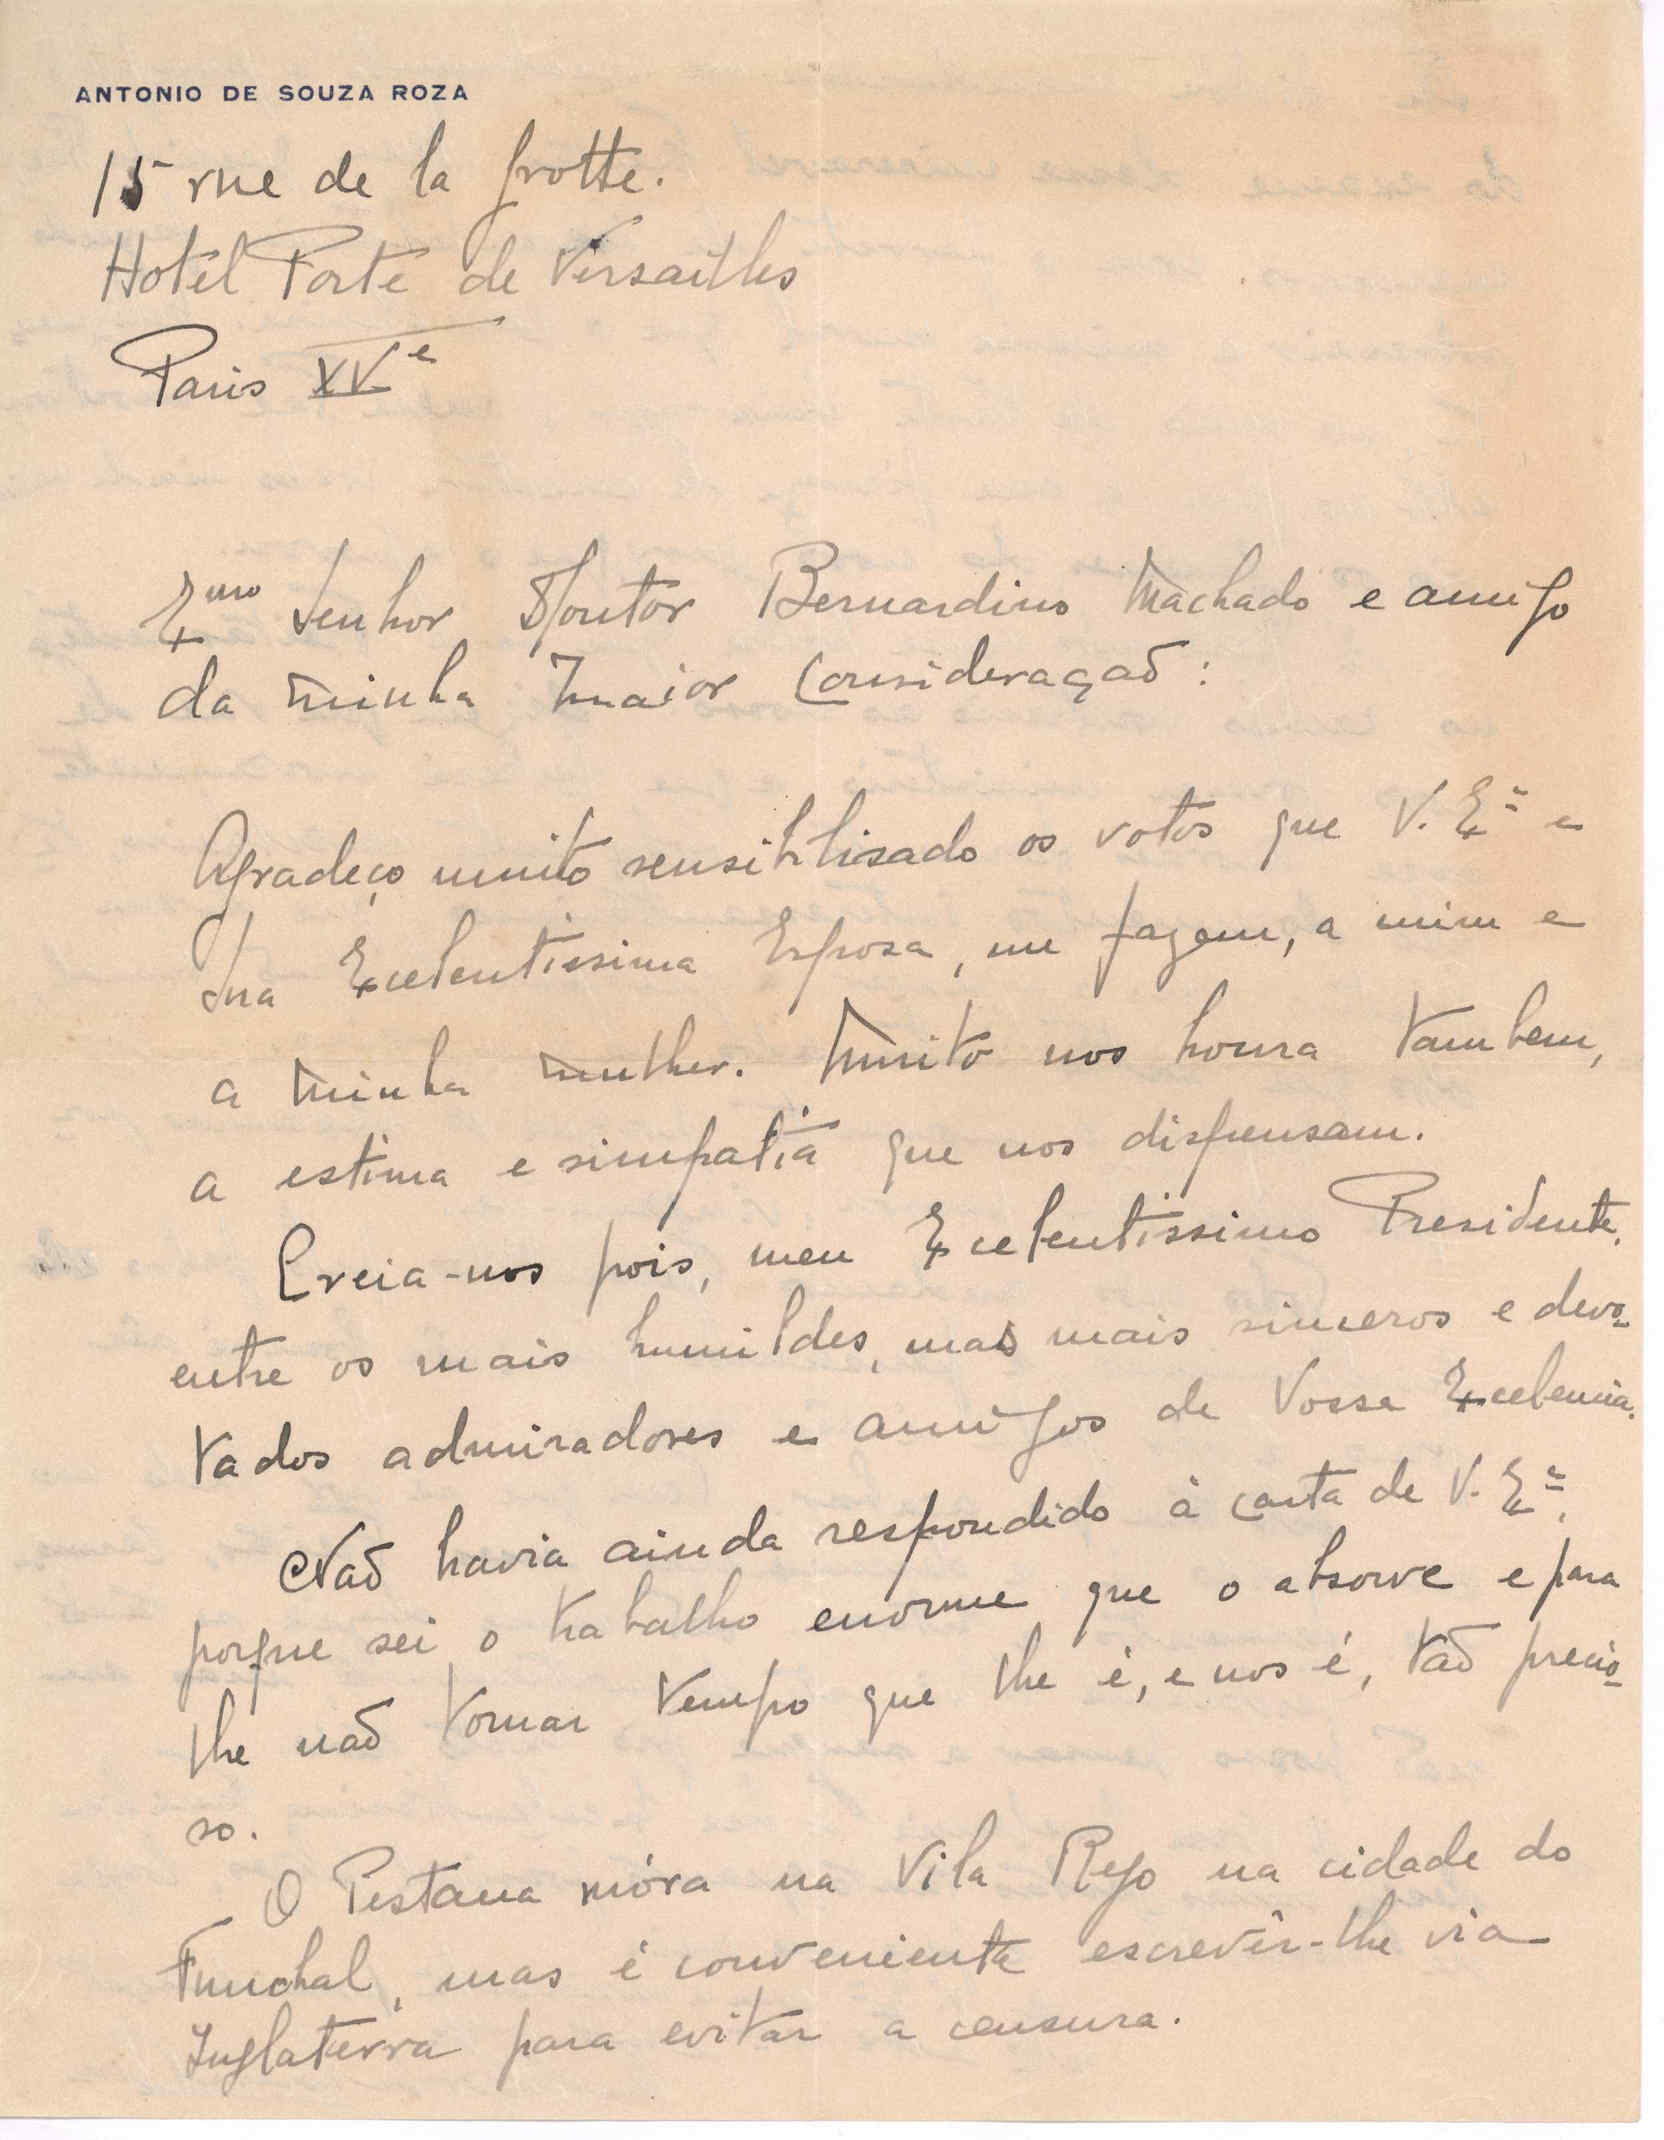 ANTONIO DE SOUZA ROZA
15 rue de la frotte.
Hotél Porte de Versailles
Paris XVe
Exmo Senhor Doutor Bernardino Machado e amigo
da minha maior Consideração:
Agradeço muito sensibilisado os votos que V. Exª e
Sua Excelentissima Esposa, me fazem, a mim e
a minha mulher. Muito nos honra tambem,
a estima e simpatia que nos dispensam.
Creia-nos pois, meu Excelentissimo Presidente,
entre os mais humildes, mas mais sinceros e devo-
tados admiradores e amigos de Vossa Excelencia.
Não havia ainda respondido à carta de V. Exª,
porque sei o trabalho enorme que o absorve e para
lhe não tomar tempo que lhe é, e nos é, tão precio-
so.
O Pestana móra na Vila Rego na cidade do
Funchal, mas é conveniente escrever-lhe via
Inglaterra para evitar a censura.